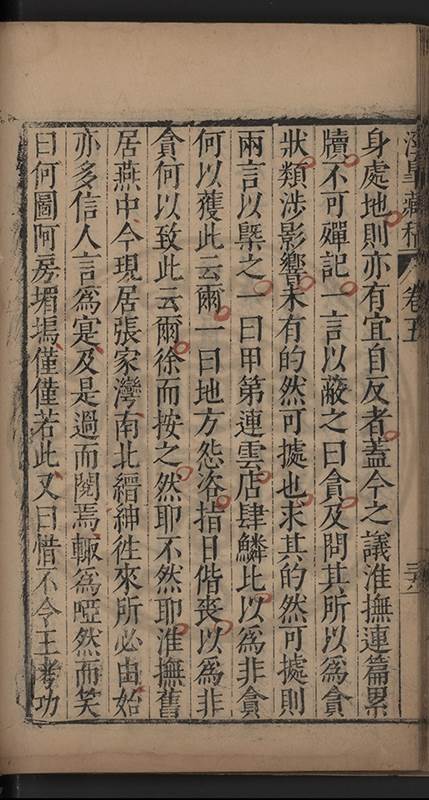 涇臯藏稿 卷五 三六
身處地則亦有宜自反者蓋今之議淮撫連篇累
牘不可殫記一言以蔽之曰貪及問其所以爲貪
狀類涉影響未有的然可據也求其的然可據則
兩言以槩之一曰甲第連雲店肆鱗比以爲非貪
何以獲此云爾一曰地方怨咨指日偕喪以爲非
貪何以致此云爾徐而按之然耶不然耶淮撫舊
居燕中今現居張家灣南北縉紳徃來所必由始
亦多信人言爲寔及是過而閱焉輙爲啞然而笑
曰何圖阿房塢僅僅若此又曰惜不令王考功